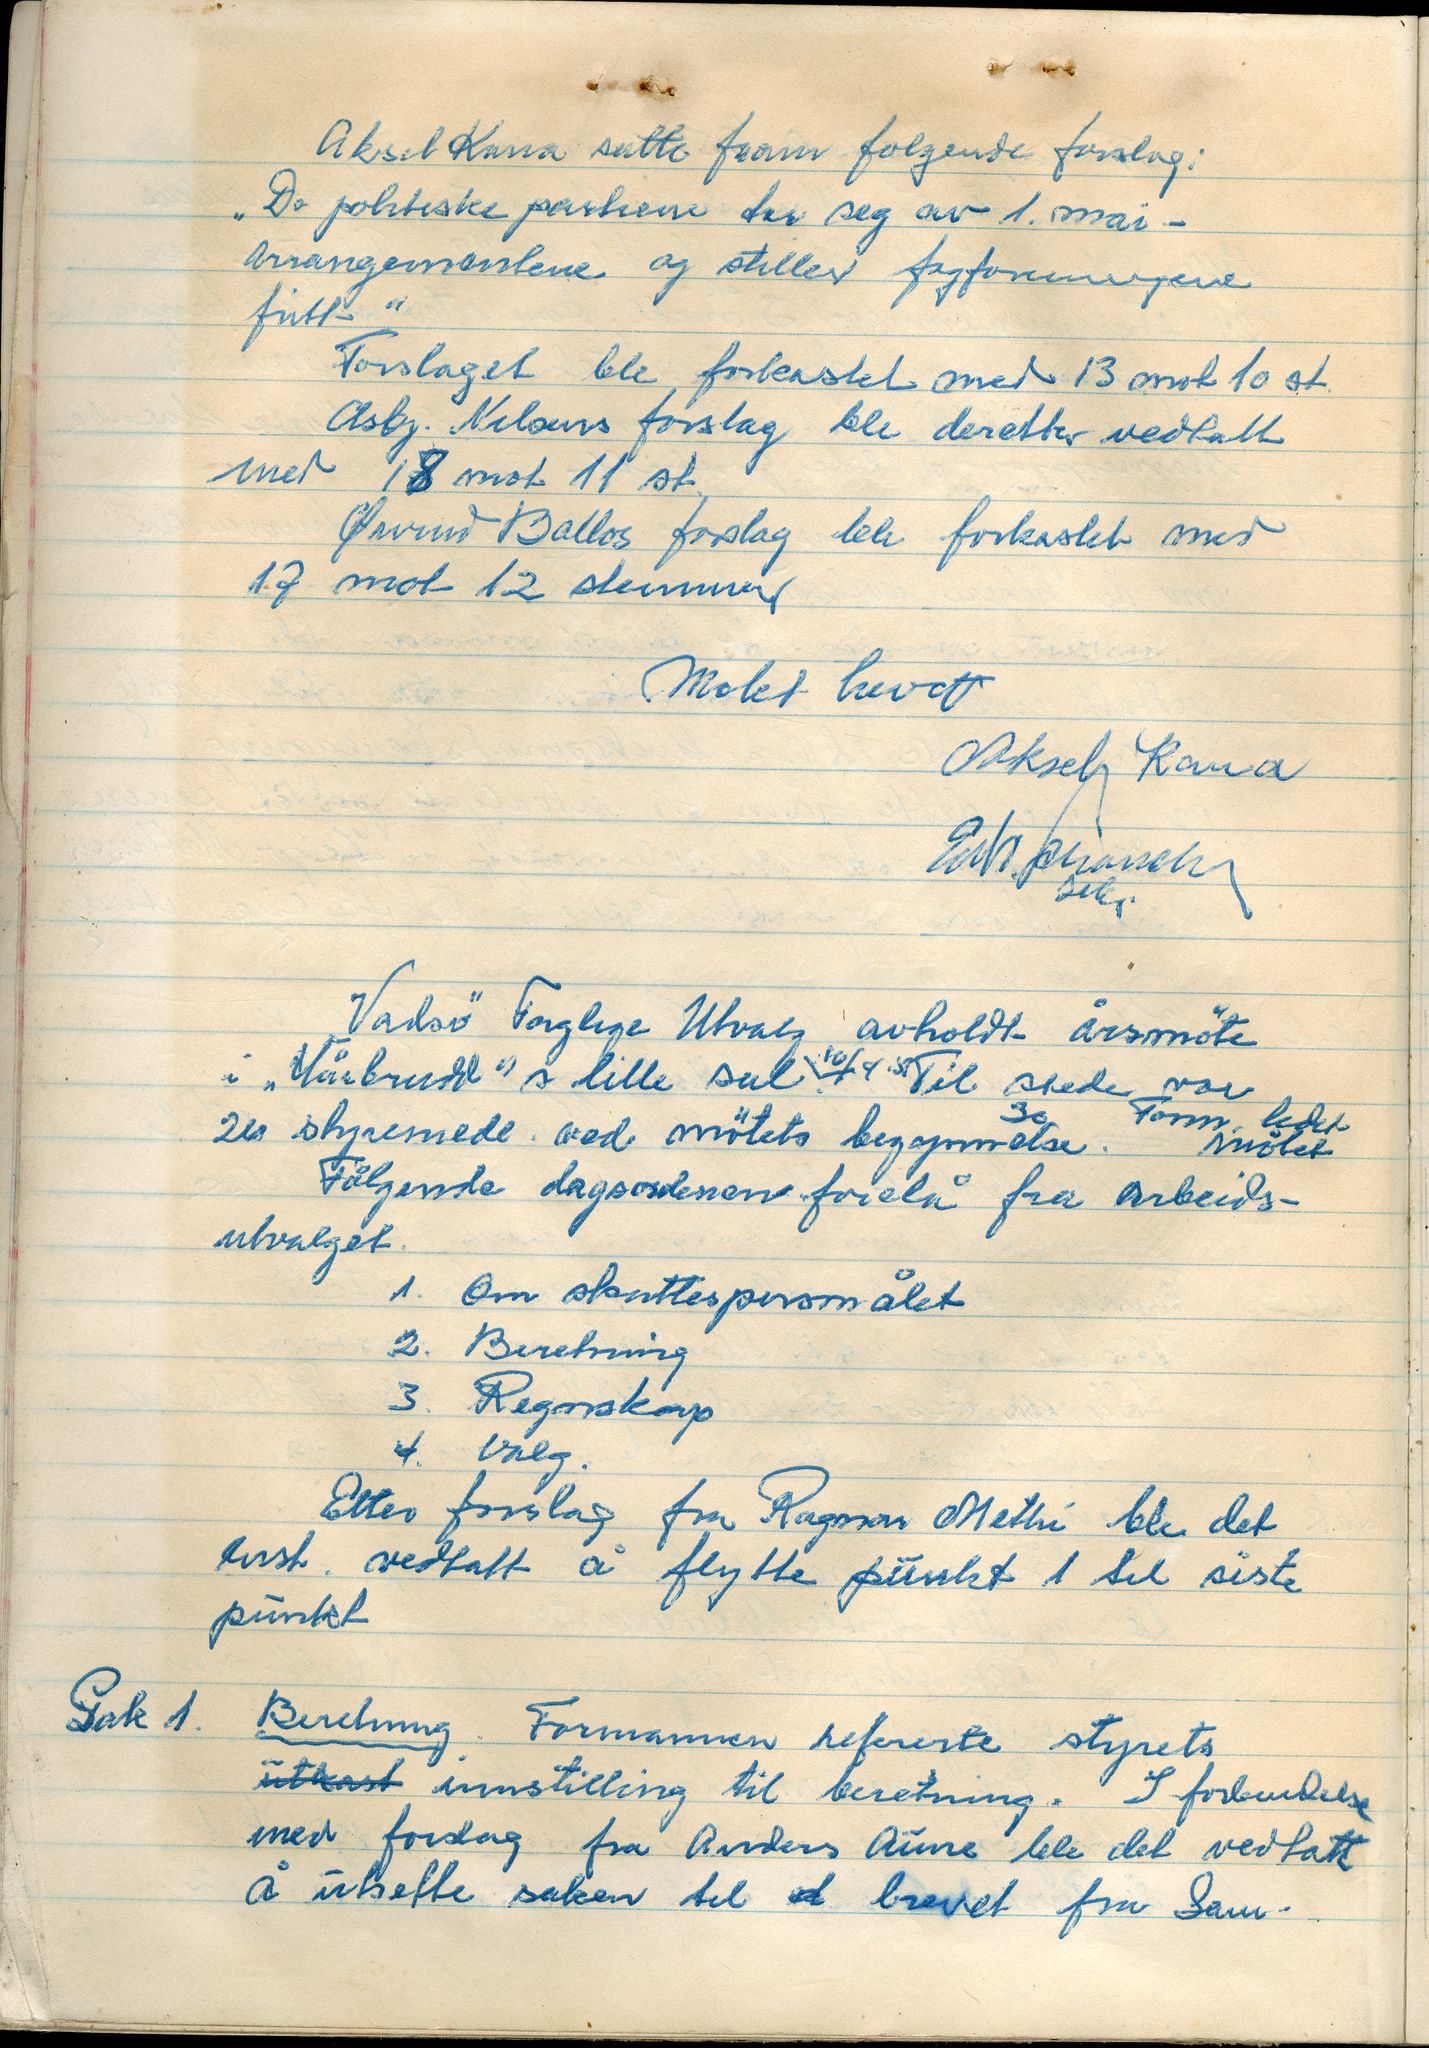 Aksel Kana satte fram følgende forslag:
"De politiske partiene tar seg av 1. mai-
arrangementene og stiller fagforeningene
fritt"
Forslaget ble forkastet med 13 mot 10 st.
Asbj. Nilsens forslag ble deretter vedtatt
med 18 mot 11 st.
Øivind Ballos forslag ble forkastet med
17 mot 12 stemmer
Møtet hevet
Aksel Kana
sekr.
Vadsö Faglige Utvalg avholdt årsmöte
i "Vårbrudd"s lille sal Til stede var
styremedl. ved mötets begynnelse. 30 Form. ledet mötet
Fölgende dagsordenen forelå fra arbeids-
utvalget.
1. Om skattespörsmålet
2. Beretning
3. Regnskap
4. Valg.
Etter forslag fra Ragnar Methi ble det
enst. vedtatt å flytte punkt 1 til siste
punkt
Sak 1. Beretning. Formannen refererte styrets
utkast innstilling til beretning. I forbindelse
med forslag fra Anders Aune ble det vedtatt
å utsette saken til brevet fra Sam-